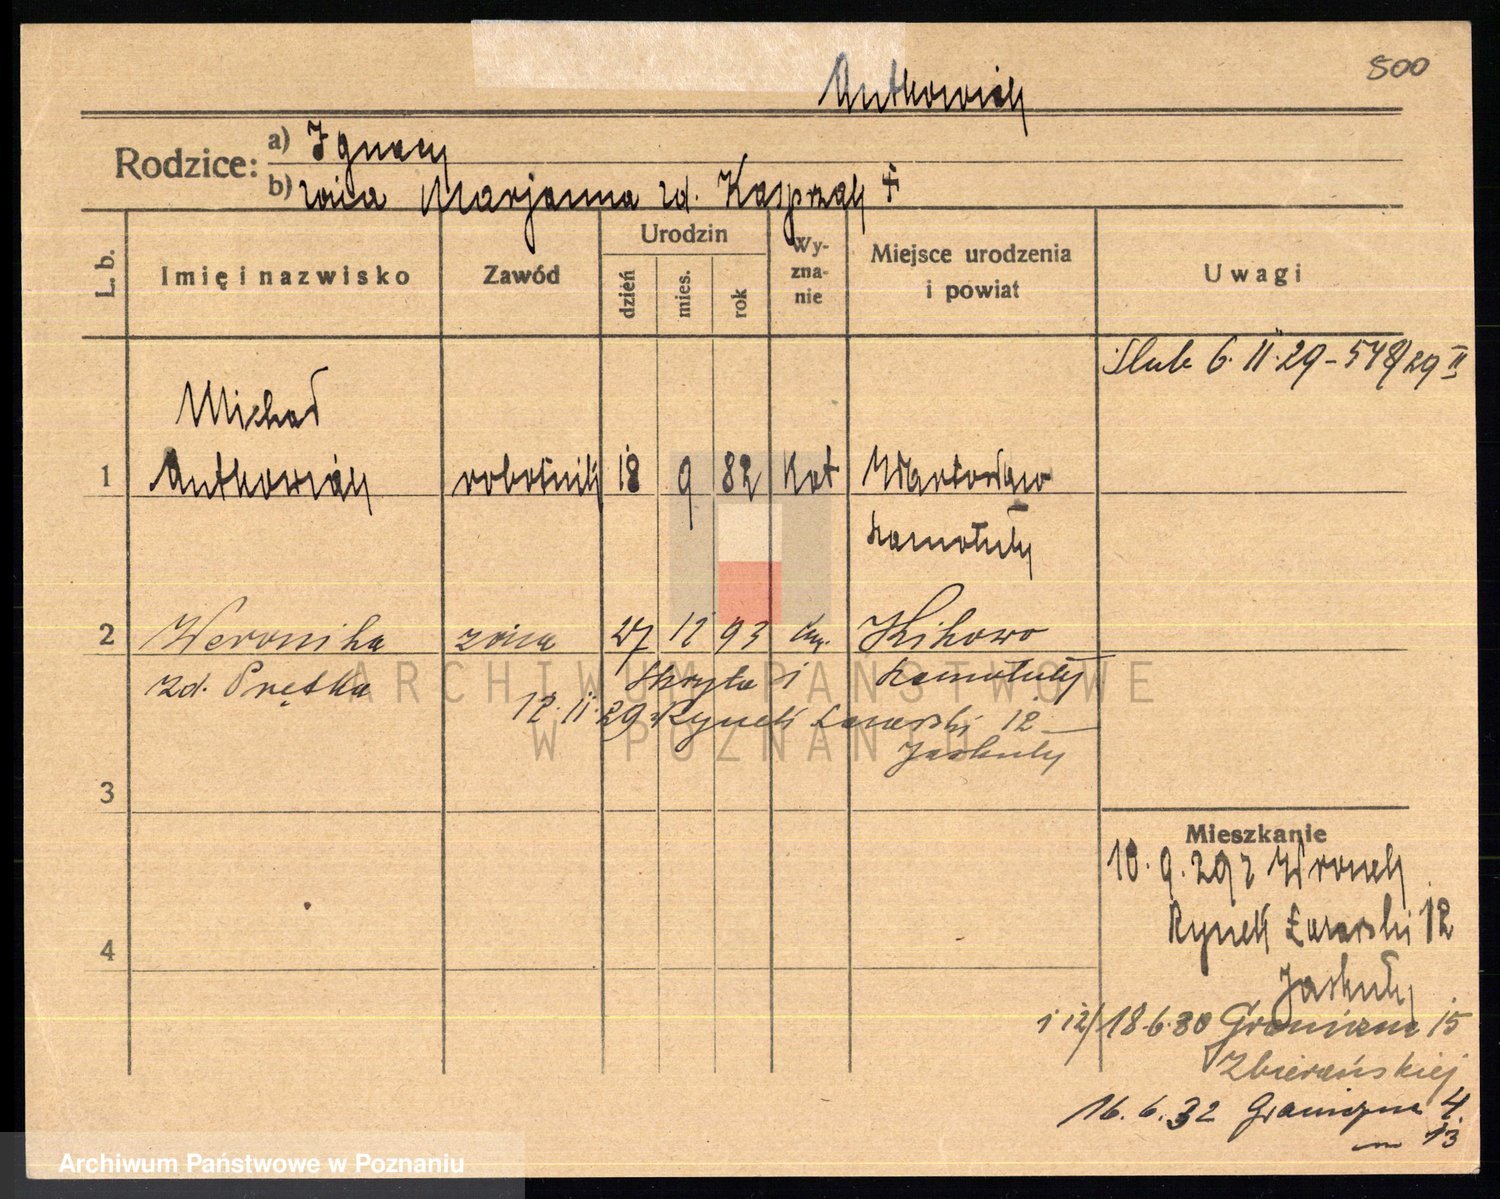 500
Antkowiak
Rodzice: a) Ignacy
b) żona Marjanna zd. Kasprzak †
L. b.
Imię i nazwisko
Zawód
Urodzin
dzień
mies.
rok
Wy-
zna-
nie
Miejsce urodzenia
i powiat
Uwagi
Ślub 6. II. 29 - 548/29 II
Michał
1 Antkowiak robotnik 18 9 82 Kat
Szamotuły
2 Weronika żona 27 12 93
zd. Prętka
Szamotuły
12. II. 29 Rynek Łazarski 12
Jaskuły
3
Mieszkanie
10. 9. 29 z Wronek
Rynek Łazarski 12
Jaskuły
4
18.6.30 Graniczna 15
Zbierańskiej
16. 6. 32 Graniczna 4
m 13
ARCHIWUM PAŃSTWOWE
W POZNANIU
Archiwum Państwowe w Poznaniu